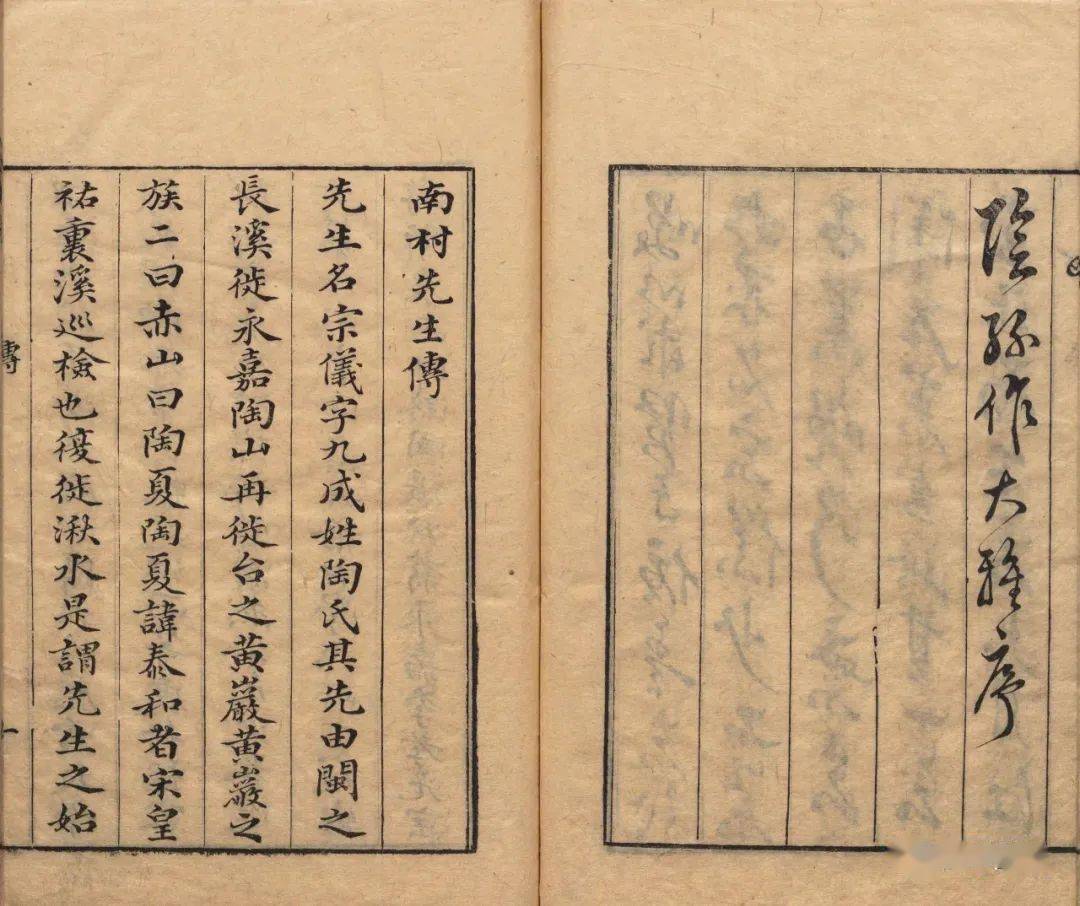 陰孫作大雅序
南村先生傳
先生名宗儀字九成姓陶氏其先由閩之
長溪徙永嘉陶山再徙台之黃巖黃巖之
族二曰赤山曰陶夏陶夏諱泰和者宋皇
祐裏溪巡檢也復徙湫水是謂先生之始
傳
一